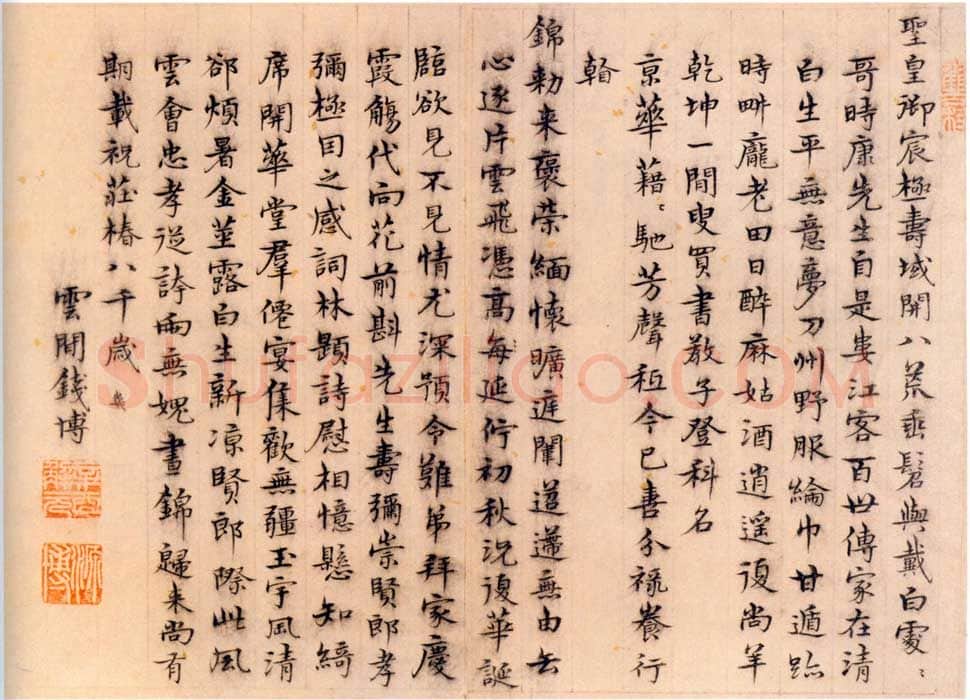 聖皇御宸極壽域開八荒垂髫與戴白處〻
哥時康先生自是婁江客百世傳家在清
白生平無意夢刀州野服綸巾甘遁跡
時畊龐老田日醉麻姑酒逍遥復尚羊
乾坤一閒叟買書教子登科名
京華藉〻馳芳聲秪今已喜分祿養行
看
錦勑来褒荣緬懷曠遊闊迢遞無由去
心逐片雲飛憑高每延佇初秋况復華誕
臨欲見不見情尤深預令難弟拜家慶
霞觴代向花前斟先生壽彌崇賢郎孝
彌極因之感詞林題詩慰相憶懸知綺
席開華堂羣僊宴集歡無疆玉宇風清
卻煩暑金莖露白生新凉賢郎際此風
雲會忠孝從誇兩無媿晝錦歸来尚有
期載祝莊椿八千歲
雲間錢博
Shufaziliao.COM